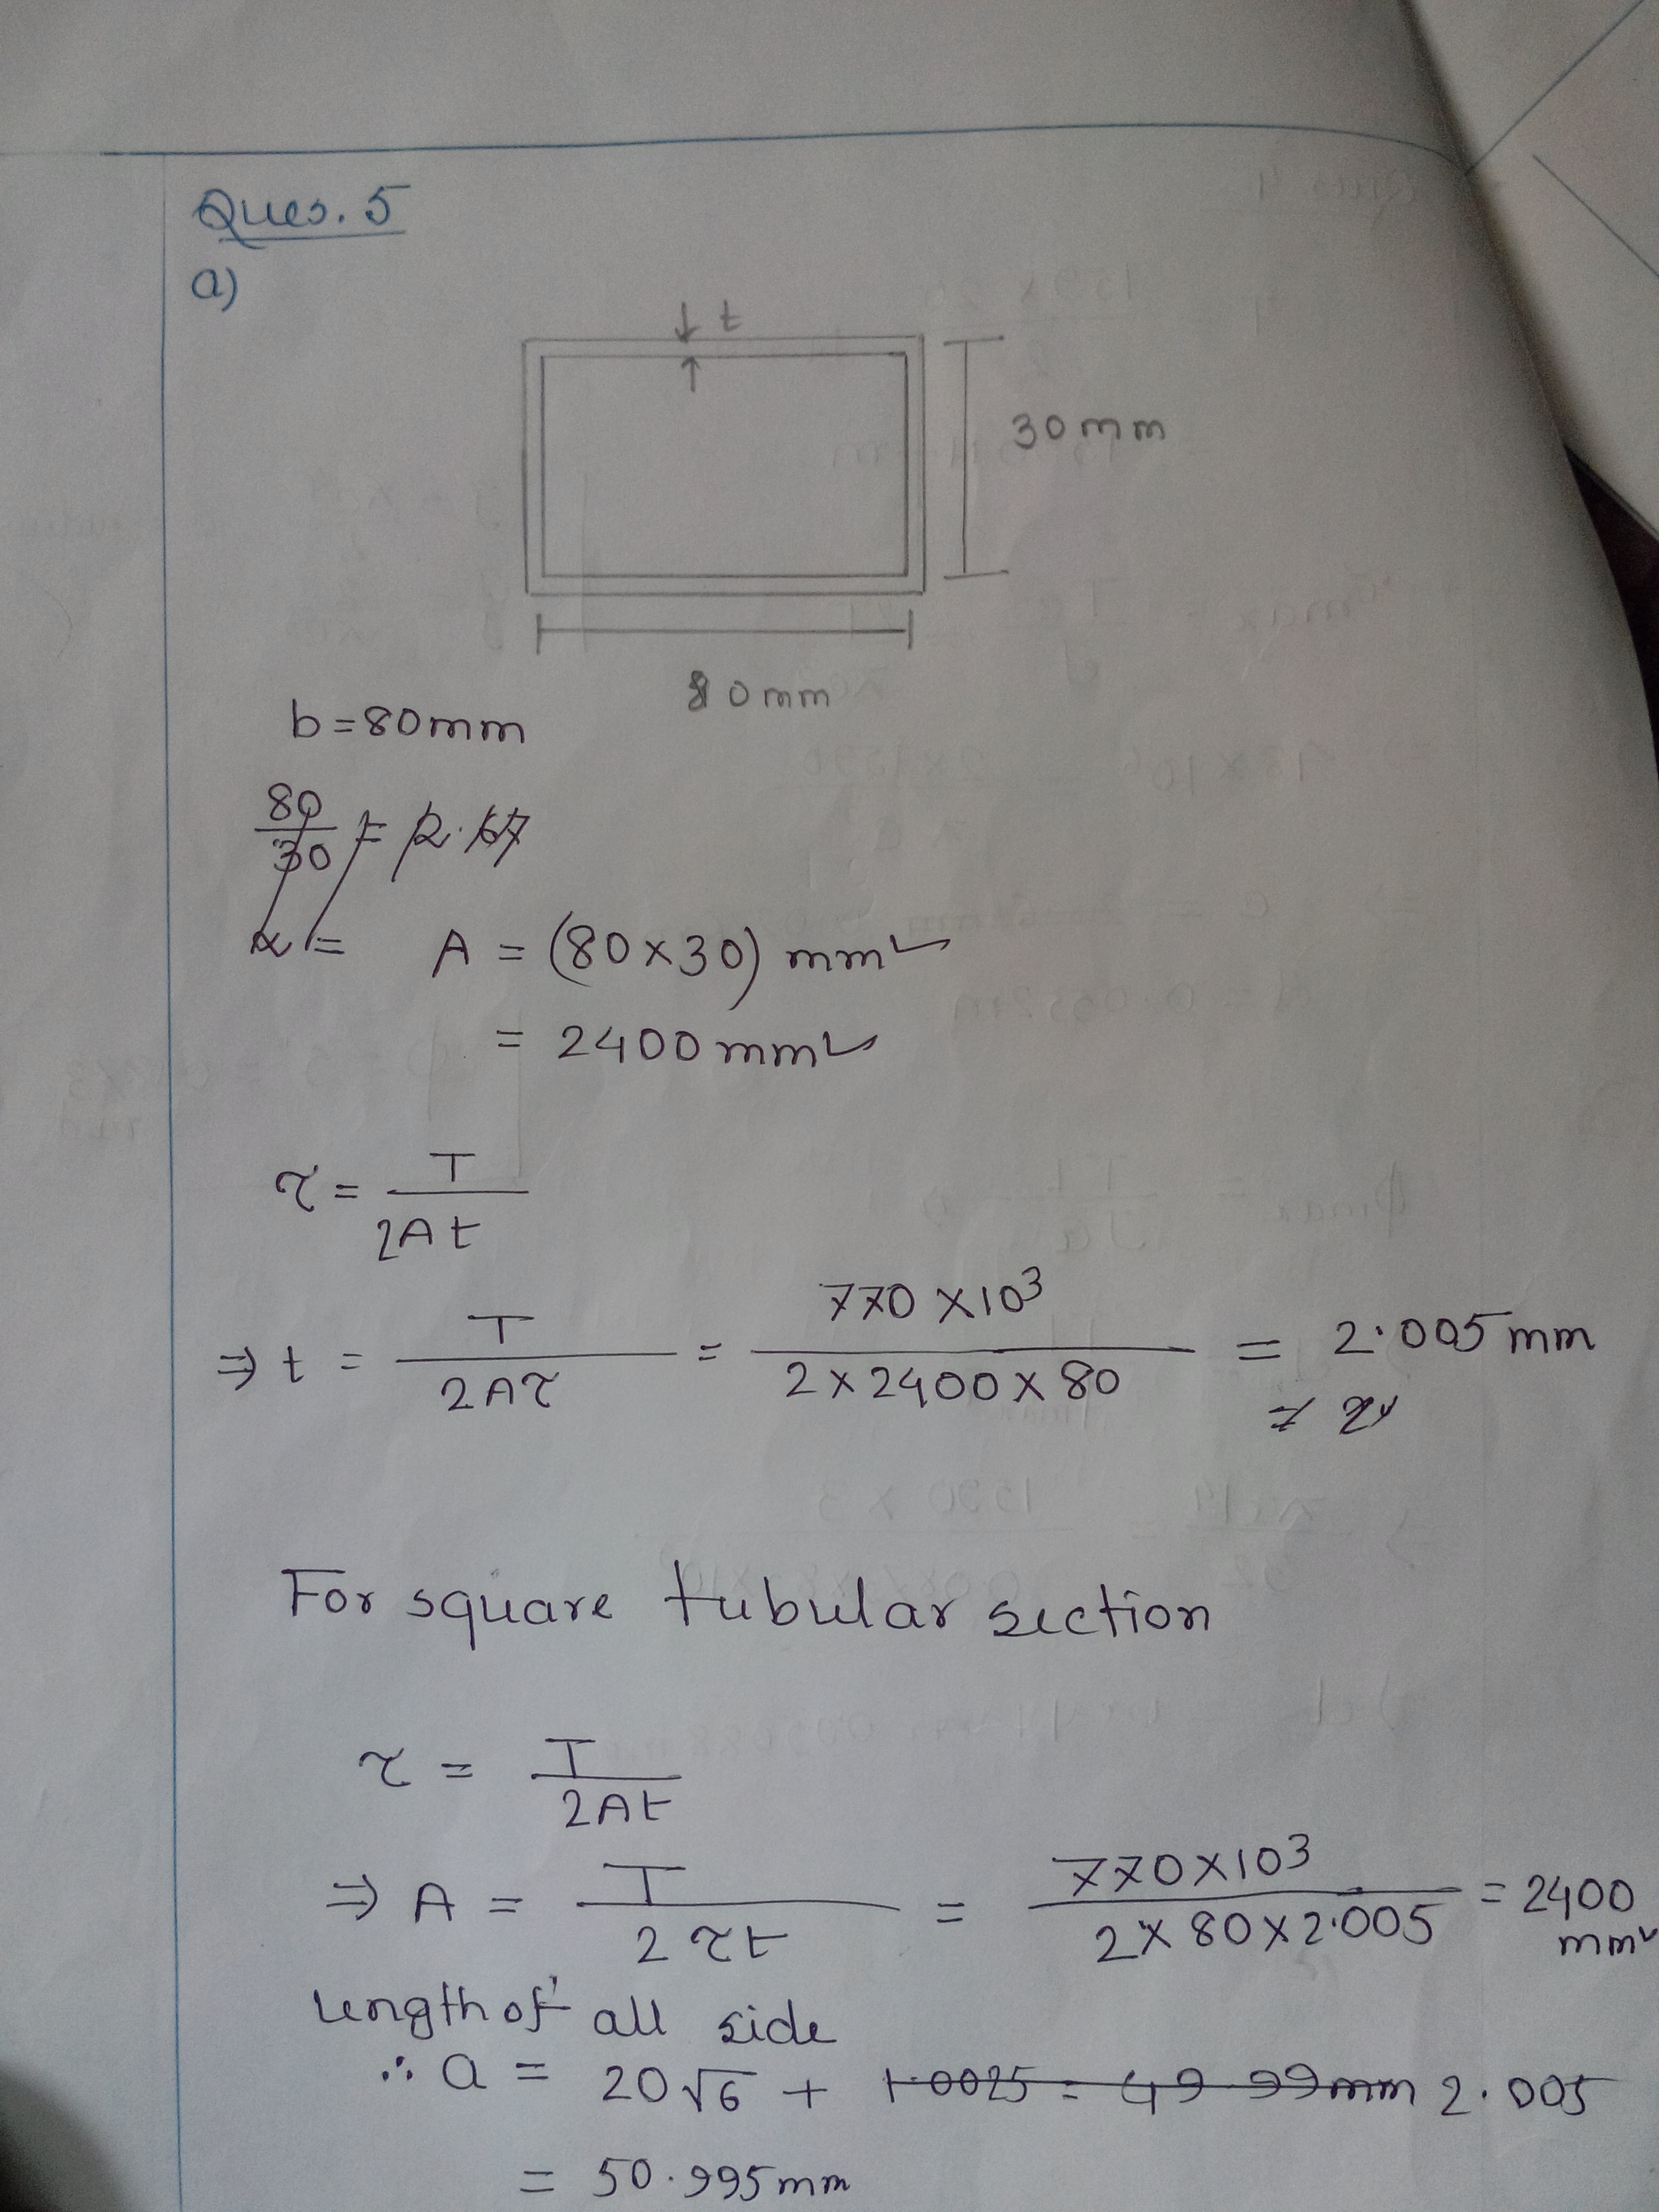 Ques. 5
a)
t
30mm
80mm
b = 80mm
80/30 = 2.67
α =
A = (80×30) mm²
= 2400mm²
τ = T/2At
⇒ t = T/2Aτ = 770×10³/2×2400×80 = 2.005mm
For square tubular section
τ = T/2At
⇒ A = T/2τt = 770×10³/2×80×2.005 = 2400
mm²
length of all side
∴ a = 20√6 + 1.0025 = 49.99mm 2.005
= 50.995mm